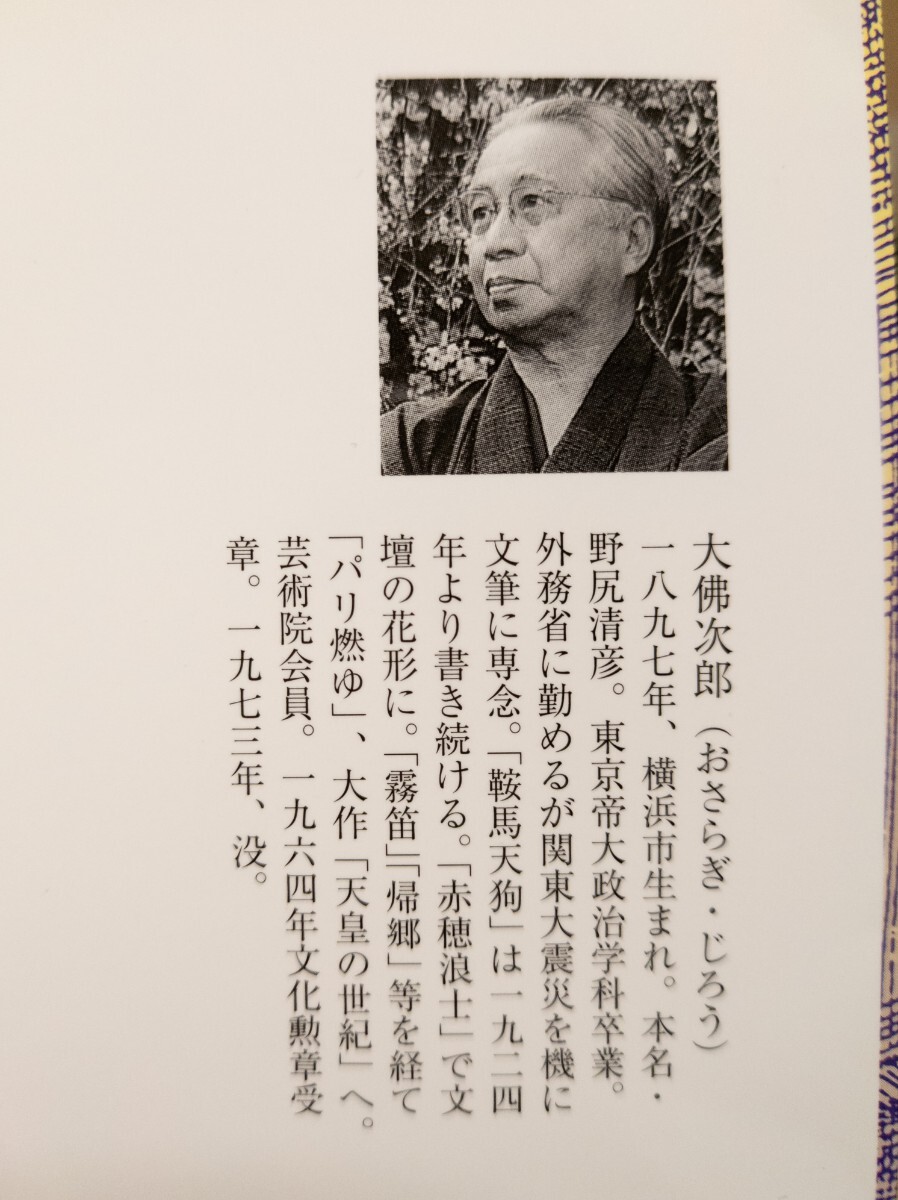 大佛次郎（おさらぎ・じろう）
一八九七年、横浜市生まれ。本名・
野尻清彦。東京帝大政治学科卒業。
外務省に勤めるが関東大震災を機に
文筆に専念。「鞍馬天狗」は一九二四
年より書き続ける。「赤穂浪士」で文
壇の花形に。「霧笛」「帰郷」等を経て
「パリ燃ゆ」、大作「天皇の世紀」へ。
芸術院会員。一九六四年文化勲章受
章。一九七三年、没。